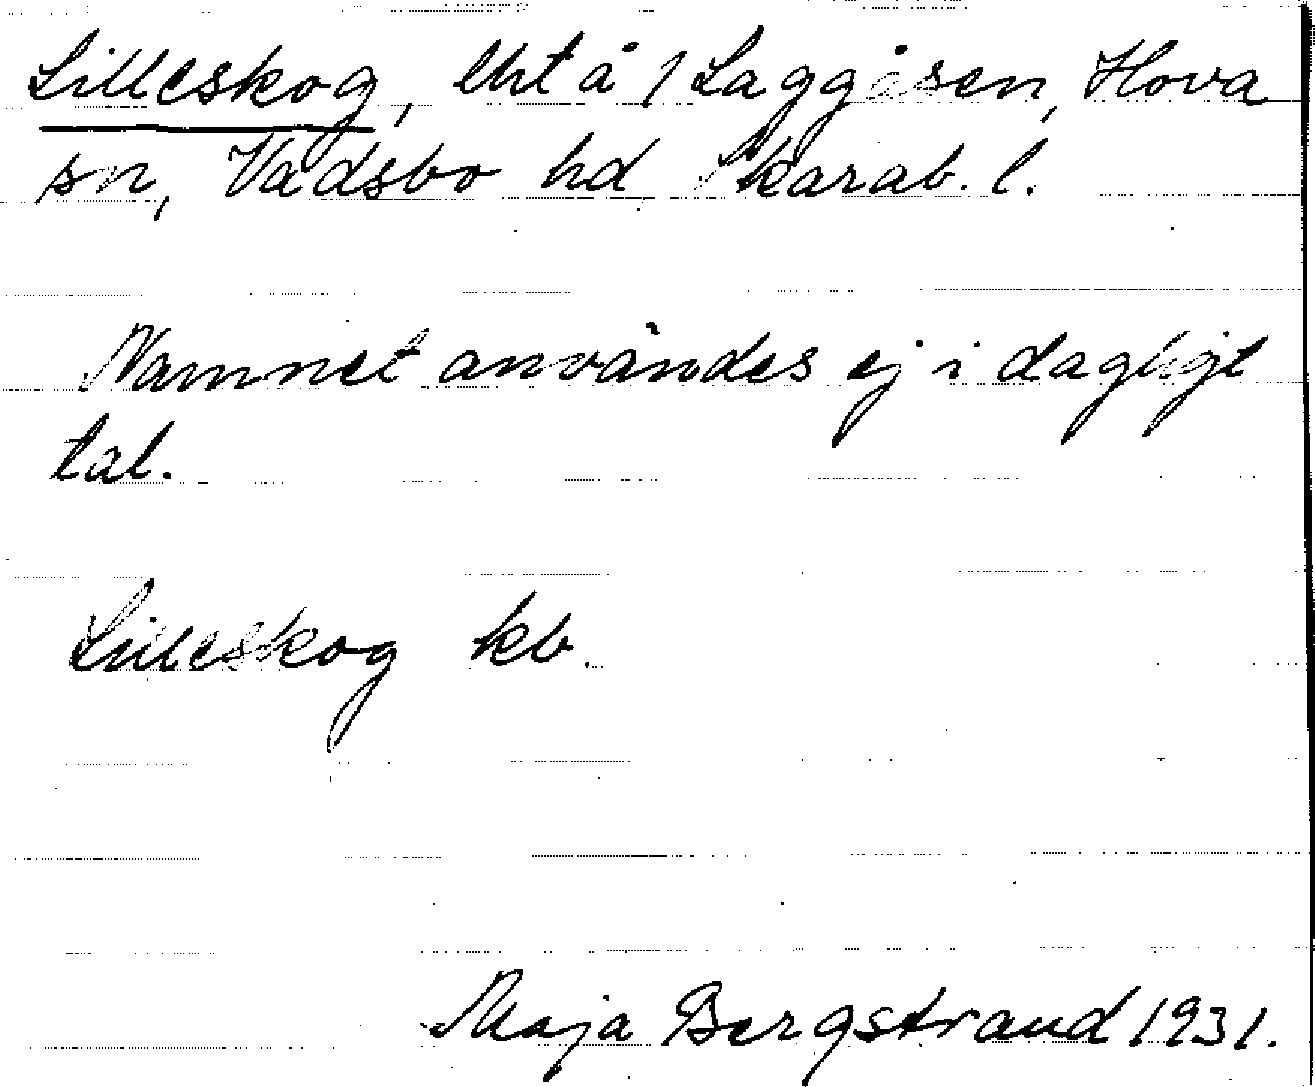 Lilleskog, lht å 1 Laggåsen, Hova
sn, Vadsbo hd Skarab. l.
Namnet användes ej i dagligt
tal.
Lilleskog kb.
Maja Bergstrand 1931.